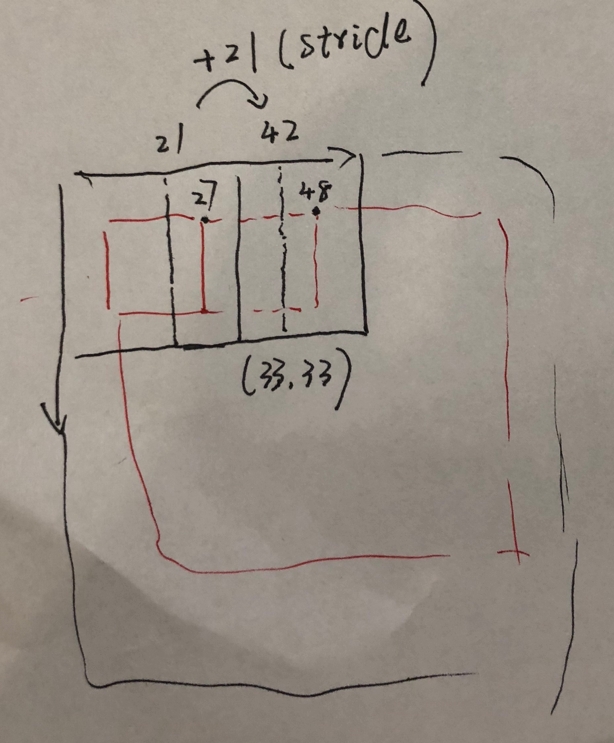 +21 (stride)
21 42
27 48
(33.33)